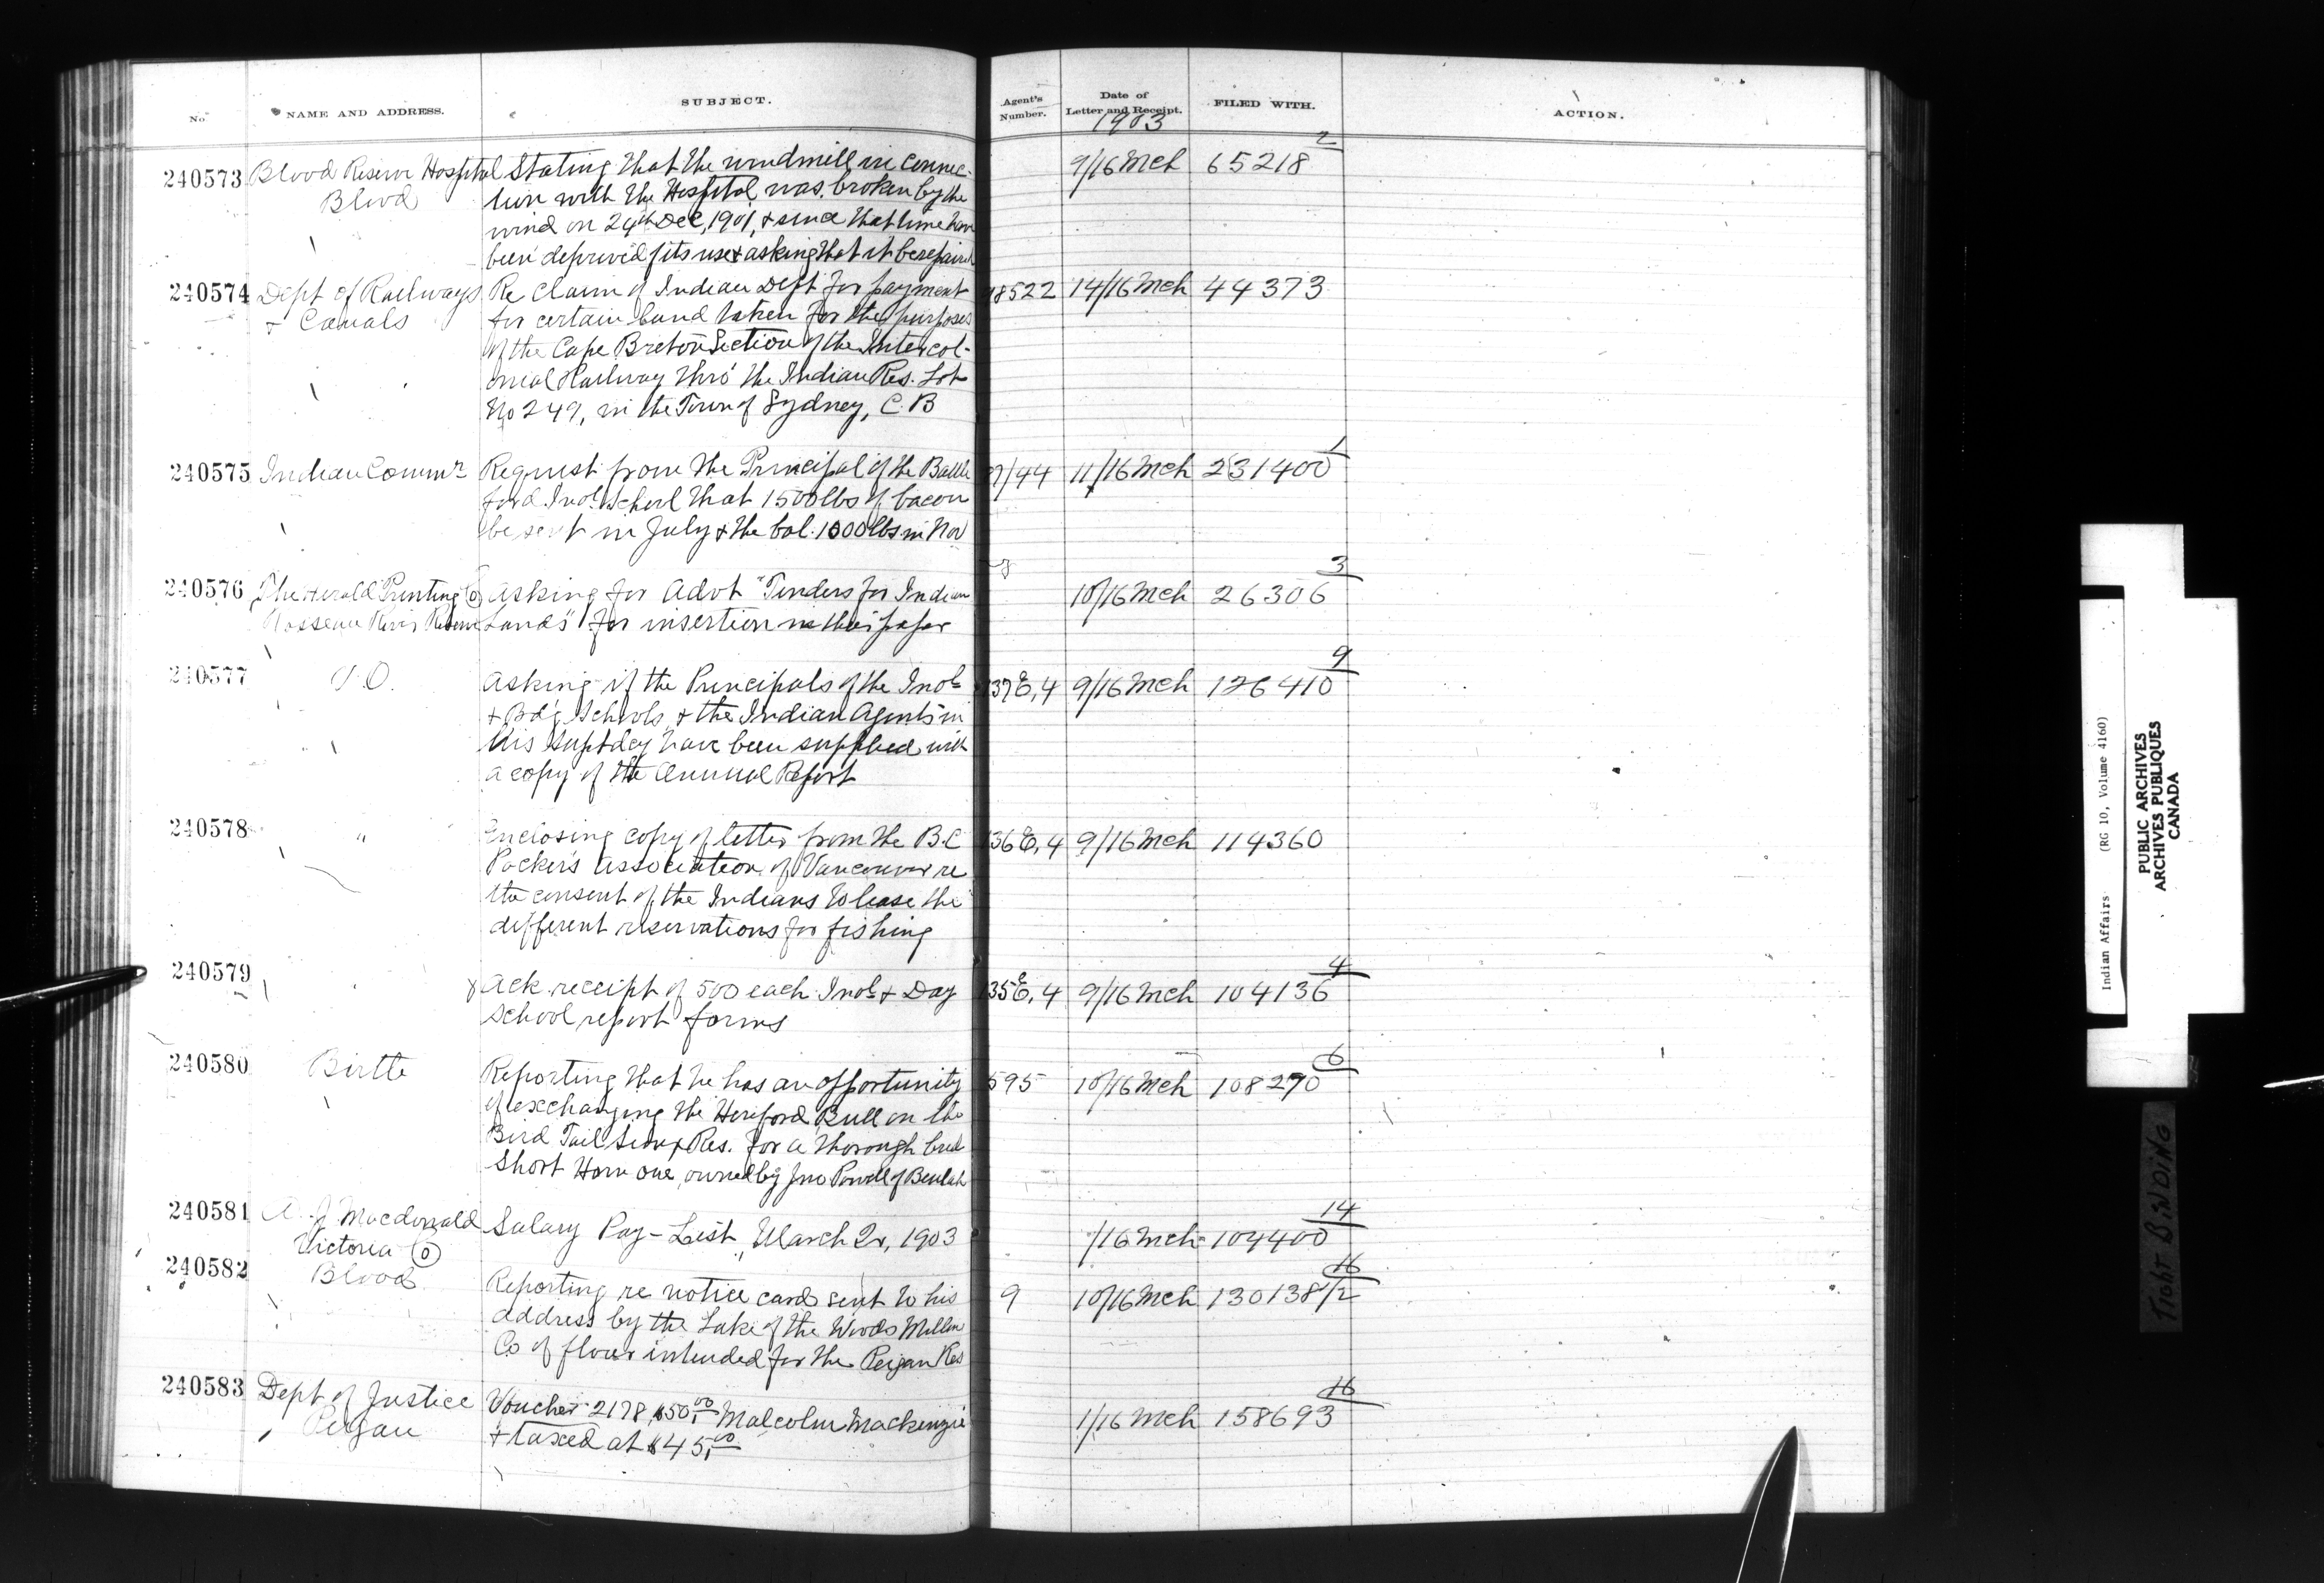 No. NAME AND ADDRESS. SUBJECT. Agent's Number. Date of Letter and Receipt. FILED WITH. ACTION.
1903
240573 Blood Reserve Hospital Stating that the windmill in connec- 9/16 Mch 65218 2
Blood tion with the Hospital was broken by the
wind on 24th Dec, 1901, & since that time have
been deprived of its use & asking that it be repaired
240574 Dept of Railways Re claim of Indian Dept for payment 98522 14/16 Mch 44373
& Canals for certain land taken for the purposes
of the Cape Breton Section of the Intercol-
onial Railway thro' the Indian Res. Lot
No 249, in the Town of Sydney, C.B
240575 Indian Commr Request from the Principal of the Battle 9/44 11/16 Mch 231400 1
ford Indl School that 1500 lbs of bacon
be sent in July & the bal. 1000 lbs in Nov
240576 The Herald Printing Co asking for Advt "Tenders for Indian 10/16 Mch 26306 3
Rosseau River Reserve Lands" for insertion in their paper
240577 V.O. Asking if the Principals of the Indl 137E,4 9/16 Mch 126410 9
& Bdg Schools & the Indian Agents in
his Suptdcy have been supplied with
a copy of the Annual Report
240578 " Enclosing copy of letter from the B.C 136E,4 9/16 Mch 114360
Packers Association of Vancouver re
the consent of the Indians to lease the
different reservations for fishing
240579 Ack receipt of 500 each Indl & Day 135E,4 9/16 Mch 104136 4
School report forms
240580 Birtle Reporting that he has an opportunity 595 10/16 Mch 108270 6
of exchanging the Hereford Bull on the
Bird Tail Sioux Res. for a thorough bred
Short Horn one, owned by Jno Powell of Beulah
240581 A. J. Macdonald Salary Pay-List, March 2, 1903 /16 Mch 104400 14
Victoria
240582 Blood Reporting re notice cards sent to his 9 10/16 Mch 130138 1/2 16
address by the Lake of the Woods Millin
Co of flour intended for the Peigan Res
240583 Dept of Justice Voucher 2178, $50,00 Malcolm Mackenzie 1/16 Mch 158693 16
Peigan & taxed at $45,00
Indian Affairs (RG 10, Volume 4160)
PUBLIC ARCHIVES
ARCHIVES PUBLIQUES
CANADA
TIGHT BINDING